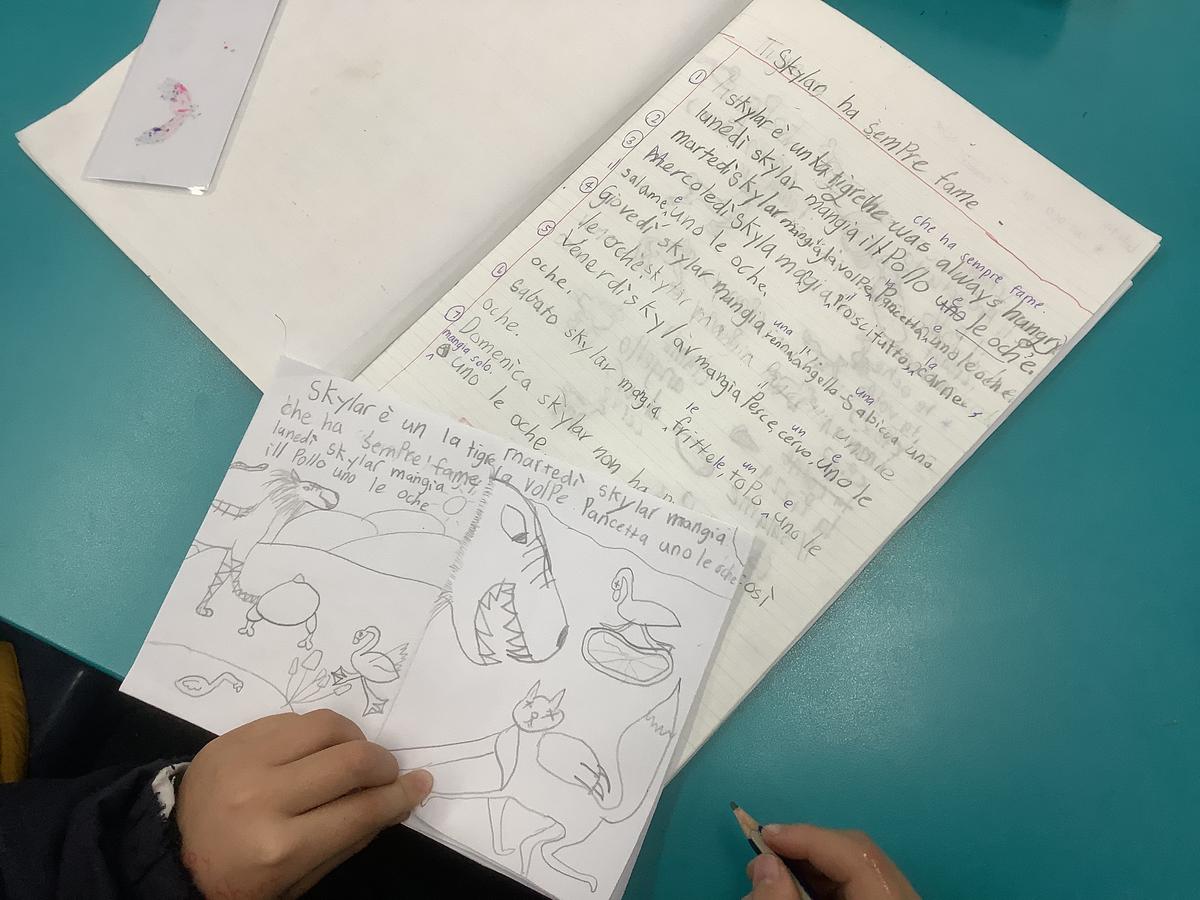 Skylar ha semPre fame
① Skylar è un la tigre was always hungry
che ha sempre fame.
② lunedì skylar mangia ill Pollo uno le oche.
e
③ martedì skylar mangia, la volPe, Pancetta, uno le oche
la e
Mercoledì Skyla magia, Proscitutto, carne,
il la
salame, uno le oche.
e
④ Giovedì skylar mangia renna, angella, Sabicca, uno
una l' una
le oche
⑤ Venerdì skylar mangia Pesce, cervo, uno le
il un e
oche.
⑥ sabato skylar mangia, frittele, toPo, uno le
le un e
oche.
⑦ Domenica skylar non ha
mangia solo.
uno le oche
osì
Skylar è un la tigre
che ha semPre fame,
lunedì skylar mangia
ill Pollo uno le oche
martedì skylar mangia
La volPe Pancetta uno le oche